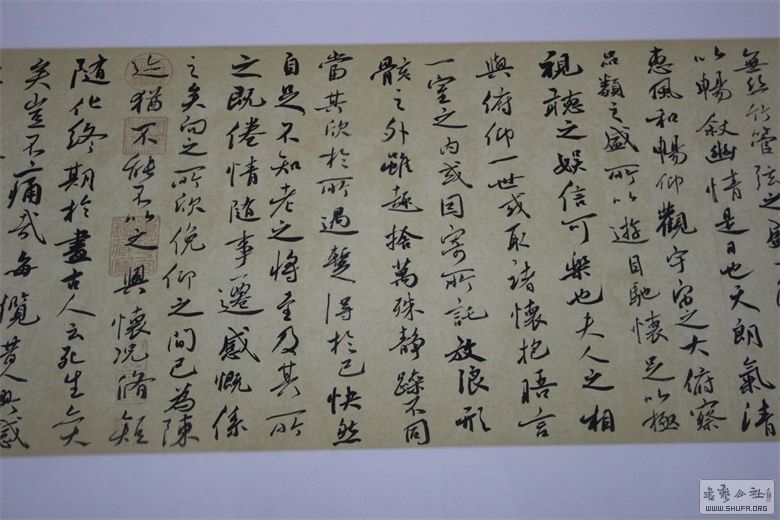 無絲竹管弦之盛
以暢敘幽情是日也天朗氣清
惠風和暢仰觀宇宙之大俯察
品類之盛所以遊目馳懷足以極
視聽之娛信可樂也夫人之相
與俯仰一世或取諸懷抱晤言
一室之內或因寄所託放浪形
骸之外雖趣捨萬殊靜躁不同
當其欣於所遇暫得於己快然
自足不知老之將至及其所
之既倦情隨事遷感慨係
之矣向之所欣俛仰之間已為陳
迹猶不能不以之興懷況脩短
隨化終期於盡古人云死生亦大
矣豈不痛哉每攬昔人興感
書藝公社
WWW.SHUFA.ORG